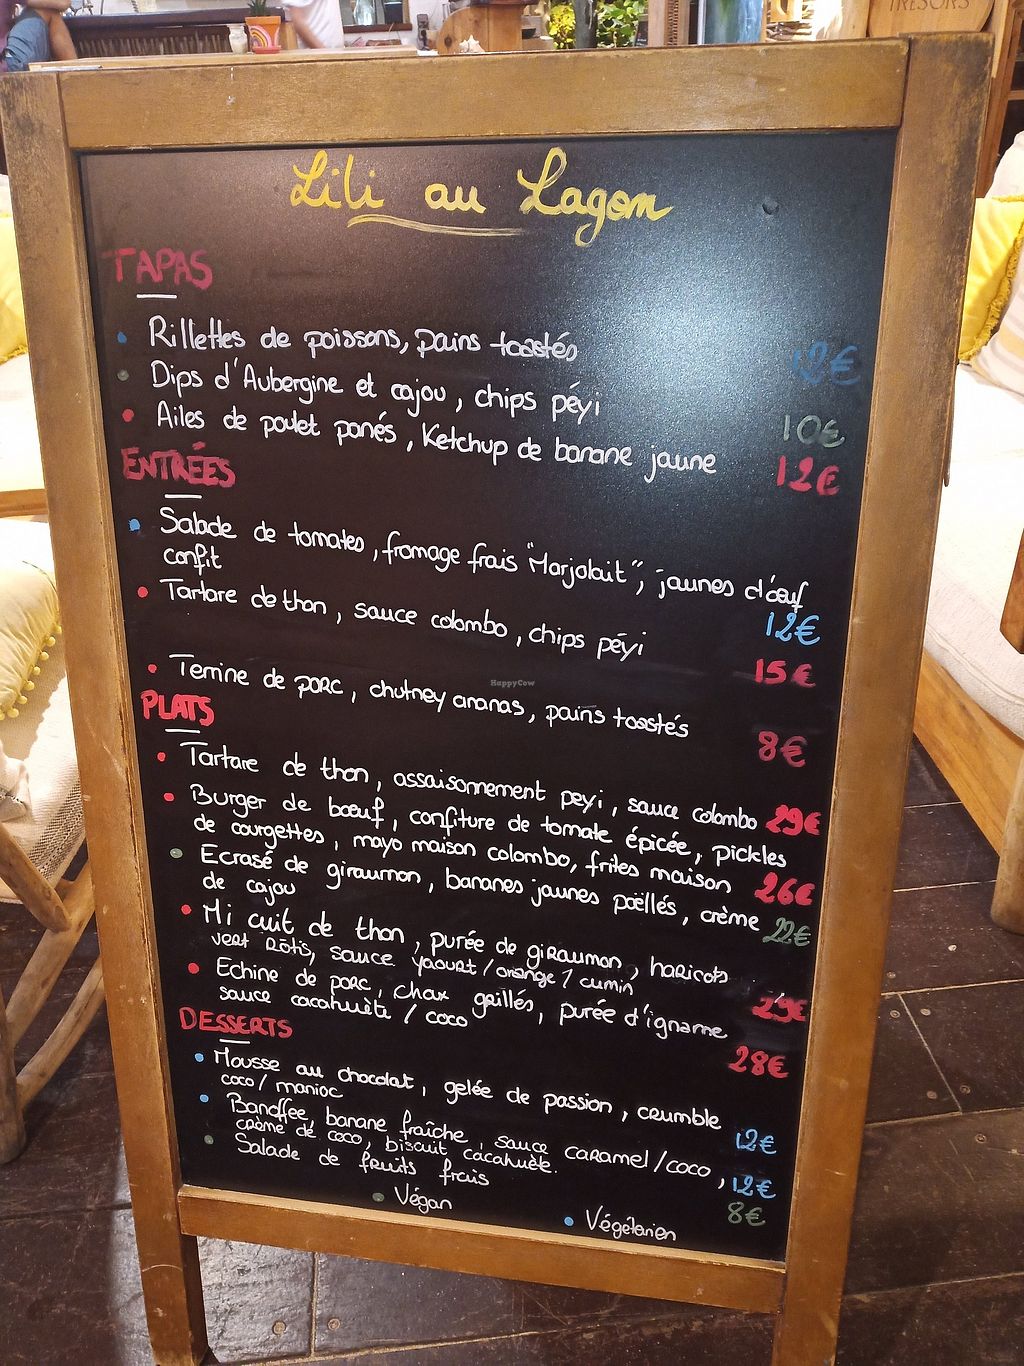 TRÉSORS
Lili au Lagom
TAPAS
• Rillettes de poissons, pains toastés 12€
• Dips d'Aubergine et cajou, chips péyi 10€
• Ailes de poulet panés, Ketchup de banane jaune 12€
ENTRÉES
• Salade de tomates, fromage frais "Marjolait", jaunes d'œuf
confit 12€
• Tartare de thon, sauce colombo, chips péyi 15€
• Terrine de porc, chutney ananas, pains toastés 8€
PLATS
• Tartare de thon, assaisonnement peyi, sauce colombo 29€
• Burger de bœuf, confiture de tomate épicée, pickles
de courgettes, mayo maison colombo, frites maison 26€
• Ecrasé de giraumon, bananes jaunes poëllés, crème
de cajou 22€
• Mi cuit de thon, purée de giraumon, haricots
vert rôtis, sauce yaourt/orange/cumin 29€
• Echine de porc, chax grillés, purée d'igname
sauce cacahuète / coco 28€
DESSERTS
• Mousse au chocolat, gelée de passion, crumble
coco/manioc 12€
• Banoffee, banane fraîche, sauce caramel/coco,
crème de coco, biscuit cacahuète. 12€
• Salade de fruits frais 8€
• Végan
• Végétarien
HappyCow